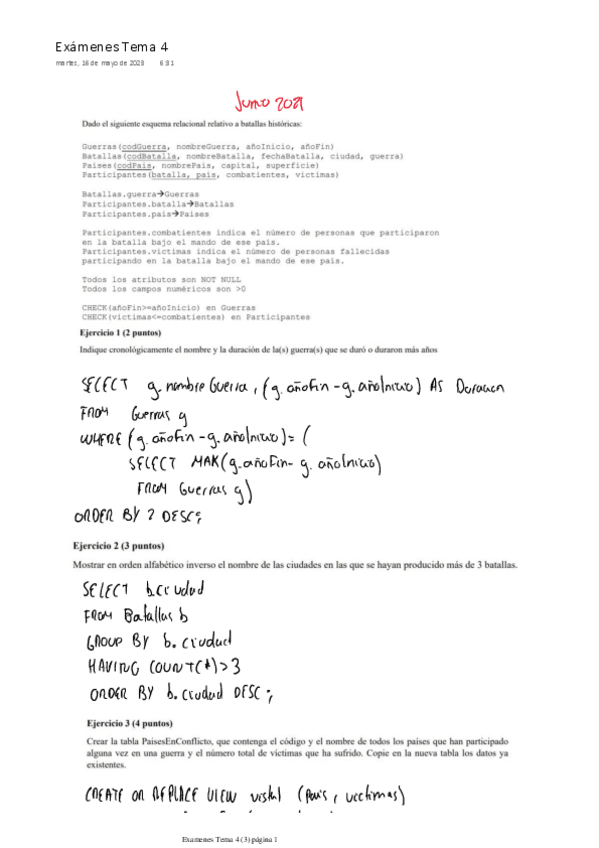 Exámenes Tema 4
martes, 16 de mayo de 2023 6:31
Junio 2021
Dado el siguiente esquema relacional relativo a batallas históricas:
Guerras(codGuerra, nombreGuerra, añoInicio, añoFin)
Batallas(codBatalla, nombreBatalla, fechaBatalla, ciudad, guerra)
Paises(codPais, nombrePais, capital, superficie)
Participantes(batalla, pais, combatientes, victimas)
Batallas.guerra→Guerras
Participantes.batalla→Batallas
Participantes.pais→Paises
Participantes.combatientes indica el número de personas que participaron
en la batalla bajo el mando de ese país.
Participantes.victimas indica el número de personas fallecidas
participando en la batalla bajo el mando de ese país.
Todos los atributos son NOT NULL
Todos los campos numéricos son >0
CHECK(añoFin>=añoInicio) en Guerras
CHECK(victimas<=combatientes) en Participantes
Ejercicio 1 (2 puntos)
Indique cronológicamente el nombre y la duración de la(s) guerra(s) que se duró o duraron más años
SELECT g.nombreGuerra, (g.añoFin - g.añoInicio) AS Duracion
FROM Guerras g
WHERE (g.añoFin - g.añoInicio) = (
SELECT MAX(g.añoFin - g.añoInicio)
FROM Guerras g)
ORDER BY 2 DESC;
Ejercicio 2 (3 puntos)
Mostrar en orden alfabético inverso el nombre de las ciudades en las que se hayan producido más de 3 batallas.
SELECT b.ciudad
FROM Batallas b
GROUP BY b.ciudad
HAVING COUNT(*)>3
ORDER BY b.ciudad DESC;
Ejercicio 3 (4 puntos)
Crear la tabla PaisesEnConflicto, que contenga el código y el nombre de todos los países que han participado
alguna vez en una guerra y el número total de víctimas que ha sufrido. Copie en la nueva tabla los datos ya
existentes.
CREATE OR REPLACE VIEW vista1 (pais, victimas)
Examenes Tema 4 (3) página 1